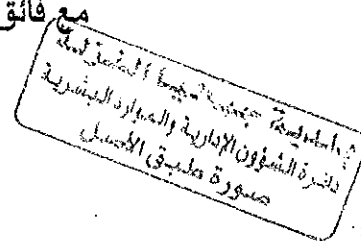 مع فائق
دائرة الشؤون الإدارية والموارد البشرية
صورة طبق الأصل